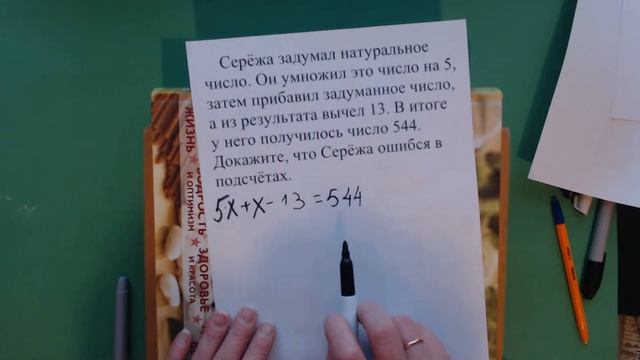 Серёжа задумал натуральное
число. Он умножил это число на 5,
затем прибавил задуманное число,
а из результата вычел 13. В итоге
у него получилось число 544.
Докажите, что Серёжа ошибся в
подсчётах.
5x+x-13=544
ЖИЗНЬ
И ОПТИМИЗМ
ЗДОРОВЬЕ
И КРАСОТА